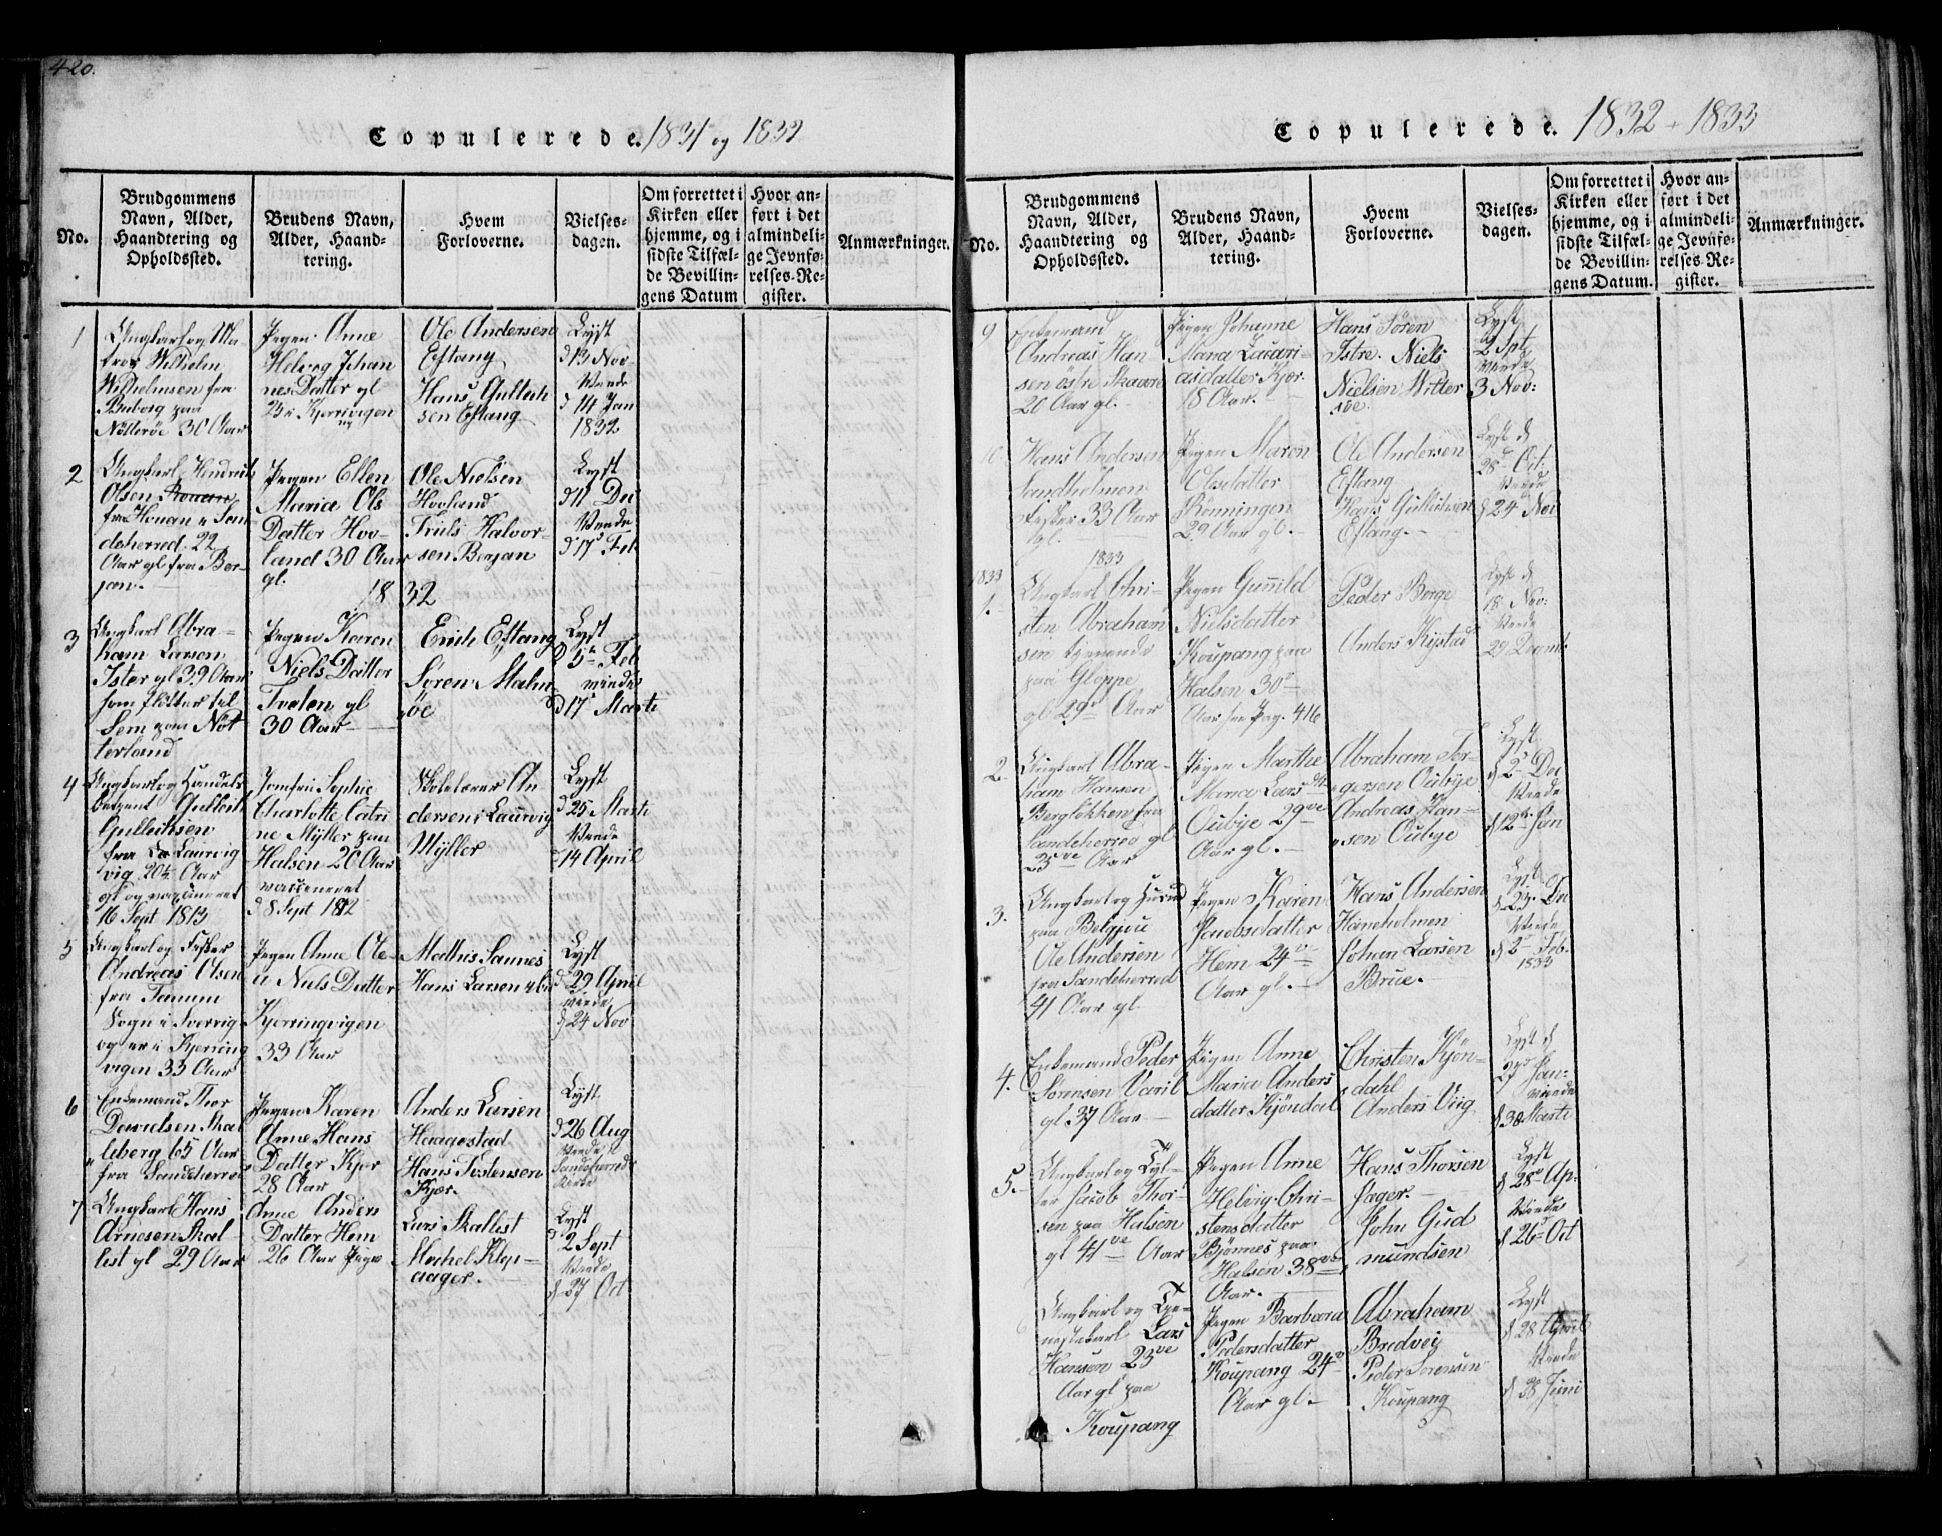 420.
Copulerede. 1831 og 1832
No.
Brudgommens
Navn, Alder,
Haandtering og
Opholdssted.
Brudens Navn,
Alder, Haand-
tering.
Hvem
Forloverne.
Vielses-
dagen.
Om forrettet i
Kirken eller
hjemme, og i
sidste Tilfæl-
de Bevillin-
gens Datum
Hvor an-
ført i det
almindeli-
ge Jevnfø-
relses-Re-
gister.
Anmærkninger.
1
Ungkarl og Ma-
tros Wilhelm
Wilhelmsen fra
Buborg paa
Nötteröe 30 Aar
Pigen Anne
Helvig Johan
nes Datter gl
23 i Kjerrivigen
Ole Andersen
Eftang
Hans Gullich
sen Eftang
Lyst
d 13 Nov
Viede
d 14 Jan
1832
2
Ungkarl Hendrich
Olsen
fra Houan i San
deherred. 22
Aar gl fra Ber-
jan.
Pigen Ellen
Maria Ols
Datter Hov-
land 30 Aar
gl.
Ole Nielsen
Hovland
Truls Halvor-
sen Berjan
Lyst
d 11 Dec
Viede
d 17 Feb
1832
3
Ungkarl Abra-
ham Larsen
Ister gl 39 Aar
som flötter til
Sem paa Nöt
terland
Pigen Karen
Niels Datter
Tveten gl
30 Aar
Erich Eftang
Sören Malm
öe
Lyst
d 5te Feb
viede
d 17 Marti
4
Ungkarl og Handels
betjent Gullich
Gullichsen
fra Laurvig
vig 20½ Aar
gl og vaccineret
16 Sept 1813
Jomfru Sophie
Charlotte Catri
ne Mÿller paa
Halsen 20 Aar
vaccineret
d 8 Sept 1812
Skolelærer An
dersen i Laurvig
Mÿller
Lyst
d 25 Marti
Viede
14 April
5
Ungkarl og Fisker
Andreas Olsen
fra Tanum
Sogn i Svervig
og er i Kjerring
vigen 33 Aar
Pigen Anne Ole-
a Niels Datter
Kjerringvigen
33 Aar
Mathis Sannes
Hans Larsen
Lyst
d 29 April
viede
d 24 Nov
6
Enkemand Thor
Davidsen Skal
leberg 65 Aar
fra Sandeherred
Pigen Karen
Anne Hans
Datter Kjær
28 Aar
Anders Larsen
Haagestad
Hans Tostensen
Kjær.
Lyst
d 26 Aug
Viede i
Sandeherreds
Kirke
7
Ungkarl Hans
Arnesen Skal
list gl 29 Aar
Anne Anders
Datter Hem
26 Aar Pige
Lars Skallist
Machel Klep-
aager.
Lyst
d 2 Sept
Viede
d 27 Oct
Copulerede. 1832 - 1833
No.
Brudgommens
Navn, Alder,
Haandtering og
Opholdssted.
Brudens Navn,
Alder, Haand-
tering.
Hvem
Forloverne.
Vielses-
dagen.
Om forrettet i
Kirken eller
hjemme, og i
sidste Tilfæl-
de Bevillin-
gens Datum.
Hvor an-
ført i det
almindeli-
ge Jevnfø-
relses-Re-
gister.
Anmærkninger.
9
Enkemand
Andreas Han
sen östre Skaare
20 Aar gl.
Pigen Johanne
Maria Zacari-
asdatter Kjær.
18 Aar.
Hans Sören
Istre. Niels
Nielsen Witter
söe.
Lyst
2 Spt
Viede
3 Nov:
10
Hans Andersen
Sandholmen
Fisker 33 Aar
gl.
Pigen Maren
Olsdatter
Rönningen
29 Aar gl.
Ole Andersen
Eftang
Hans Gullichsen
Eftang.
Lyst d
28d Oct:
Viede
d 24 Nov
1833
1833
1.
Ungkarl Chri-
sten Abraham
sen tjenende
paa Gloppe
gl 29 Aar
Pigen Gunild
Nielsdatter
Koupang paa
Halsen 30
Aar see Pag. 416
Peder Borge
Anders Kystad
Lyst d
18 Nov:
Viede
29 Decmb.
2.
Ungkarl Abra-
ham Hansen
Bergløkken fra
Sandeherred gl
25ve Aar
Pigen Marthe
Maria Lars Dtr
Oubÿe 29ve
Aar gl.
Abraham Tor-
gersen Oubÿe
Andreas Han-
sen Oubÿe
Lyst
d 2 Dec
Viede
d 12te Jan
3.
Ungkarl og Huusmd
paa Belgjou
Ole Andersen
fra Sandeherred
41 Aar gl
Pigen Karen
Jacobsdatter
Hem 24
Aar gl.
Hans Andersen
Haneholmen
Johan Larsen
Brue.
Lyst
d 23. Dec
Viede
d 2 Feb.
1833
4.
Enkemand Peder
Sörensen Varil
gl 37 Aar
Pigen Anne
Maria Anders
datter Kjöndal
Christen Kjön-
dahl
Anders Viig
Lyst d
27d Jan-
viede
d 30 Marti
5.
Ungkarl og
Jacob Thor-
sen paa Halsen
gl 41ve Aar
Pigen Anne
Helvig Chri-
stensdatter
Bjönnes paa
Halsen 38ve
Aar.
Hans Thorsen
Jager.
John Gud
mundsen
Lyst
d 28 Ap.
Viede
d 26 Oct
6
Ungkarl og Tje-
nestekarl Lars
Hansen 23ve
Aar gl paa
Koupang
Pigen Barbara
Pedersdatter
Koupang 24
Aar gl.
Abraham
Bredvei
Peder Sörensen
Koupang
Lyst
d 28 April
Viede
d 28 Juni